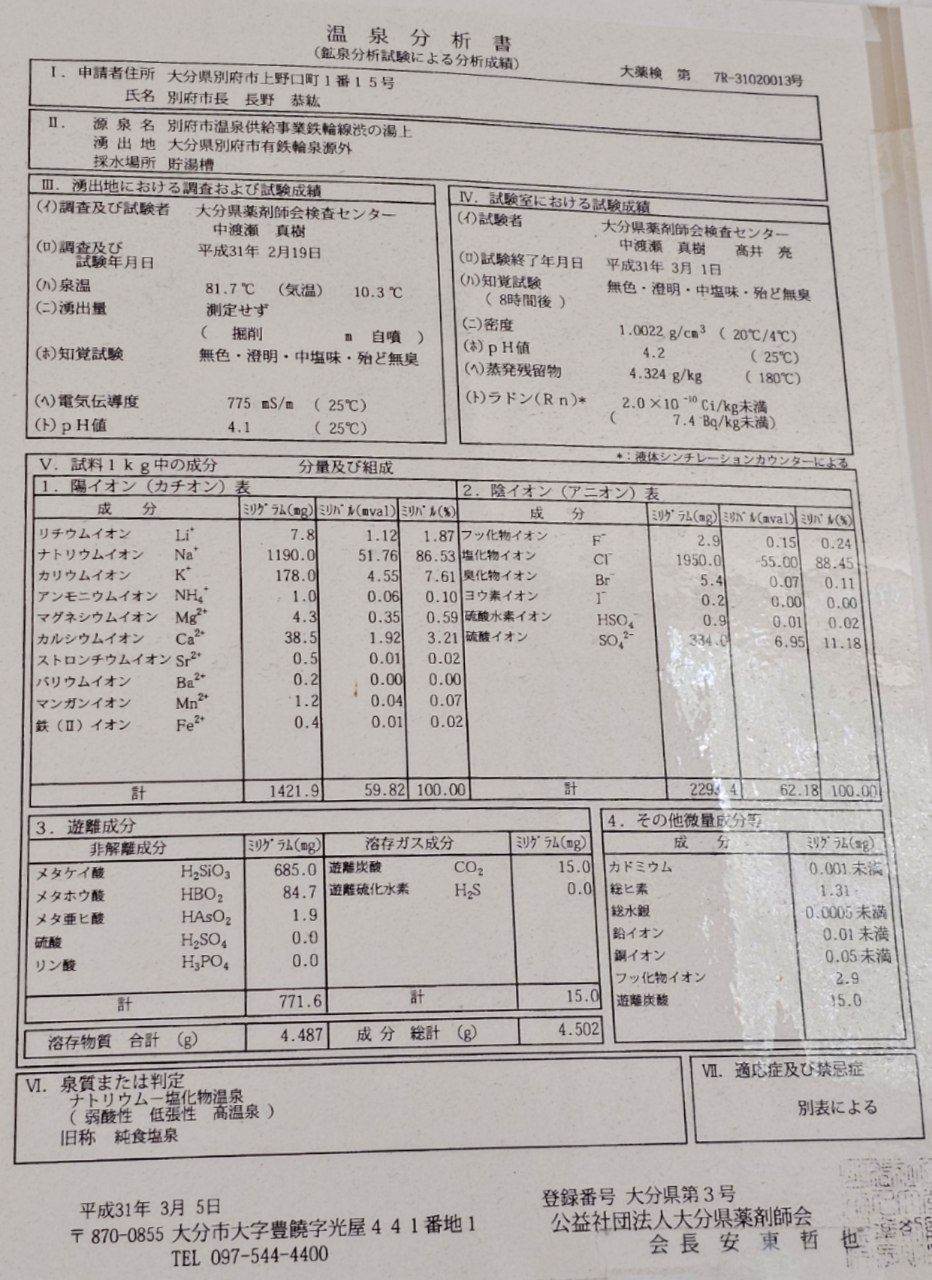 温泉分析書
(鉱泉分析試験による分析成績)
大薬検 第 7R-31020013号
Ⅰ. 申請者住所 大分県別府市上野口町1番15号
氏名 別府市長 長野 恭紘
Ⅱ. 源泉名 別府市温泉供給事業鉄輪線渋の湯上
湧出地 大分県別府市有鉄輪泉源外
採水場所 貯湯槽
Ⅲ. 湧出地における調査および試験成績
(イ)調査及び試験者 大分県薬剤師会検査センター
中渡瀬 真樹
(ロ)調査及び
試験年月日 平成31年 2月19日
(ハ)泉温 81.7℃ (気温) 10.3℃
(ニ)湧出量 測定せず
( 掘削 m 自噴 )
(ホ)知覚試験 無色・澄明・中塩味・殆ど無臭
(ヘ)電気伝導度 775 mS/m (25℃)
(ト)pH値 4.1 (25℃)
Ⅳ. 試験室における試験成績
(イ)試験者 大分県薬剤師会検査センター
中渡瀬 真樹 髙井 亮
(ロ)試験終了年月日 平成31年 3月 1日
(ハ)知覚試験 無色・澄明・中塩味・殆ど無臭
( 8時間後 )
(ニ)密度 1.0022 g/cm³ ( 20℃/4℃)
(ホ)pH値 4.2 (25℃)
(ヘ)蒸発残留物 4.324 g/kg (180℃)
(ト)ラドン(Rn)* 2.0×10⁻¹⁰ Ci/kg未満
( 7.4 Bq/kg未満)
*:液体シンチレーションカウンターによる
Ⅴ. 試料1kg中の成分 分量及び組成
1. 陽イオン(カチオン)表
成 分 ミリグラム(mg) ミリバル(mval) ミリバル(%)
リチウムイオン Li⁺ 7.8 1.12 1.87
ナトリウムイオン Na⁺ 1190.0 51.76 86.53
カリウムイオン K⁺ 178.0 4.55 7.61
アンモニウムイオン NH₄⁺ 1.0 0.06 0.10
マグネシウムイオン Mg²⁺ 4.3 0.35 0.59
カルシウムイオン Ca²⁺ 38.5 1.92 3.21
ストロンチウムイオン Sr²⁺ 0.5 0.01 0.02
バリウムイオン Ba²⁺ 0.2 0.00 0.00
マンガンイオン Mn²⁺ 1.2 0.04 0.07
鉄(Ⅱ)イオン Fe²⁺ 0.4 0.01 0.02
計 1421.9 59.82 100.00
2. 陰イオン(アニオン)表
成 分 ミリグラム(mg) ミリバル(mval) ミリバル(%)
フッ化物イオン F⁻ 2.9 0.15 0.24
塩化物イオン Cl⁻ 1950.0 55.00 88.45
臭化物イオン Br⁻ 5.4 0.07 0.11
ヨウ素イオン I⁻ 0.2 0.00 0.00
硫酸水素イオン HSO₄⁻ 0.9 0.01 0.02
硫酸イオン SO₄²⁻ 334.0 6.95 11.18
計 2293.4 62.18 100.00
3. 遊離成分
非解離成分 ミリグラム(mg)
メタケイ酸 H₂SiO₃ 685.0
メタホウ酸 HBO₂ 84.7
メタ亜ヒ酸 HAsO₂ 1.9
硫酸 H₂SO₄ 0.0
リン酸 H₃PO₄ 0.0
計 771.6
溶存ガス成分 ミリグラム(mg)
遊離炭酸 CO₂ 15.0
遊離硫化水素 H₂S 0.0
計 15.0
溶存物質 合計 (g) 4.487 成分 総計 (g) 4.502
4. その他微量成分等
成 分 ミリグラム(mg)
カドミウム 0.001 未満
総ヒ素 1.31
総水銀 0.0005 未満
鉛イオン 0.01 未満
銅イオン 0.05 未満
フッ化物イオン 2.9
遊離炭酸 15.0
Ⅵ. 泉質または判定
ナトリウム－塩化物温泉
( 弱酸性 低張性 高温泉 )
旧称 純食塩泉
Ⅶ. 適応症及び禁忌症
別表による
平成31年 3月 5日
〒870-0855 大分市大字豊饒字光屋441番地1
TEL 097-544-4400
登録番号 大分県第3号
公益社団法人大分県薬剤師会
会長 安東哲也